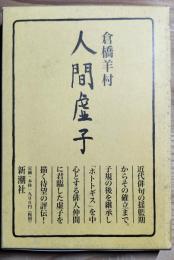 倉橋羊村
人間虚子
近代俳句の揺籃期
からその確立まで、
子規の後を継承し
「ホトトギス」を中
心とする俳人仲間
に君臨した虚子を
描く待望の評伝!
新潮社